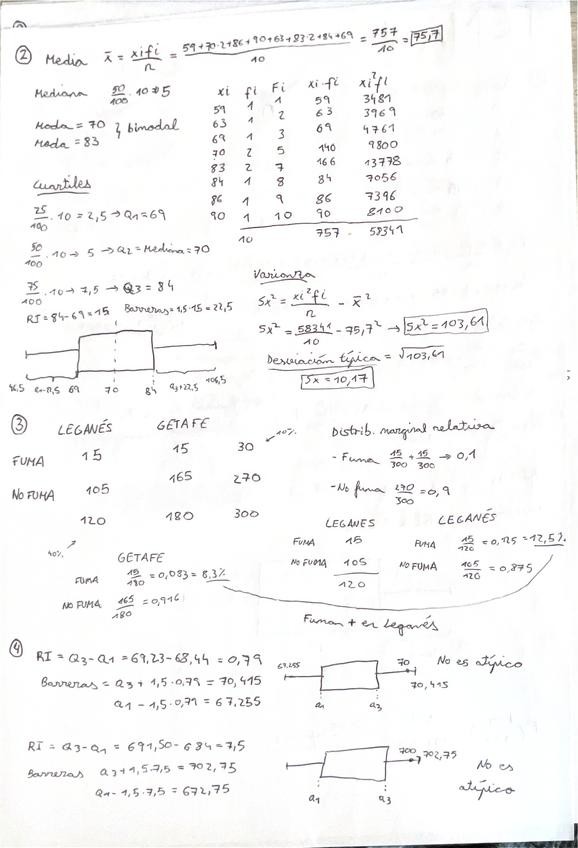 ② Media x̄ = xifi/n = 59+70·2+86+90+63+83·2+84+69/10 = 757/10 = 75,7
Mediana 50/100 · 10 → 5
Moda = 70
Moda = 83 } bimodal
xi fi Fi xi·fi xi²fi
59 1 1 59 3481
63 1 2 63 3969
69 1 3 69 4761
70 2 5 140 9800
83 2 7 166 13778
84 1 8 84 7056
86 1 9 86 7396
90 1 10 90 8100
10 757 58341
Cuartiles
25/100 · 10 = 2,5 → Q1 = 69
50/100 · 10 → 5 → Q2 = Mediana = 70
75/100 · 10 → 7,5 → Q3 = 84
RI = 84-69 = 15 Barreras = 1,5·15 = 22,5
46,5 Q1-22,5 69 70 84 Q3+22,5 106,5
Varianza
Sx² = xi²fi/n - x̄²
Sx² = 58341/10 - 75,7² → Sx² = 103,61
Desviación típica = √103,61
Sx = 10,17
③ LEGANÉS GETAFE
FUMA 15 15 30 10%
NO FUMA 105 165 270
120 180 300
40%
Distrib. marginal relativa
- Fuma 15/300 + 15/300 → 0,1
- No fuma 270/300 = 0,9
LEGANES
FUMA 15
NO FUMA 105
120
LEGANÉS
FUMA 15/120 = 0,125 = 12,5%
NO FUMA 105/120 = 0,875
GETAFE
FUMA 15/180 = 0,083 = 8,3%
NO FUMA 165/180 = 0,916
Fuman + en Leganés
④ RI = Q3-Q1 = 69,23-68,44 = 0,79
Barreras = Q3 + 1,5·0,79 = 70,415
Q1 - 1,5·0,79 = 67,255
67,255 70 70,415
Q1 Q3
No es atípico
RI = Q3-Q1 = 691,50-684 = 7,5
Barreras Q3+1,5·7,5 = 702,75
Q1-1,5·7,5 = 672,75
700 702,75
Q1 Q3
No es
atípico